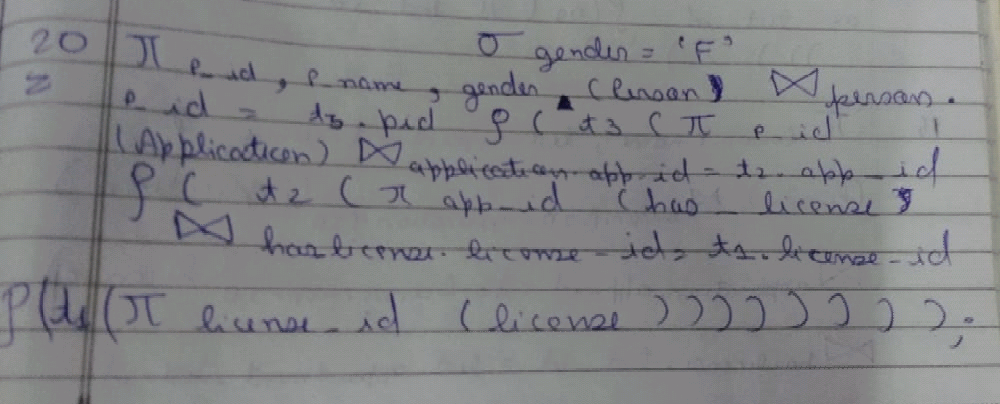 20 π p_id, p_name, gender σ gender = 'F'
(Person) ⋈ person.
p_id = t3.pid ρ ( t3 ( π p_id
(Application) ⋈ application.app_id = t2.app_id
ρ ( t2 ( π app_id (has_license)
⋈ has license.license_id = t1.license_id
ρ(t1(π license_id (license )))))))));